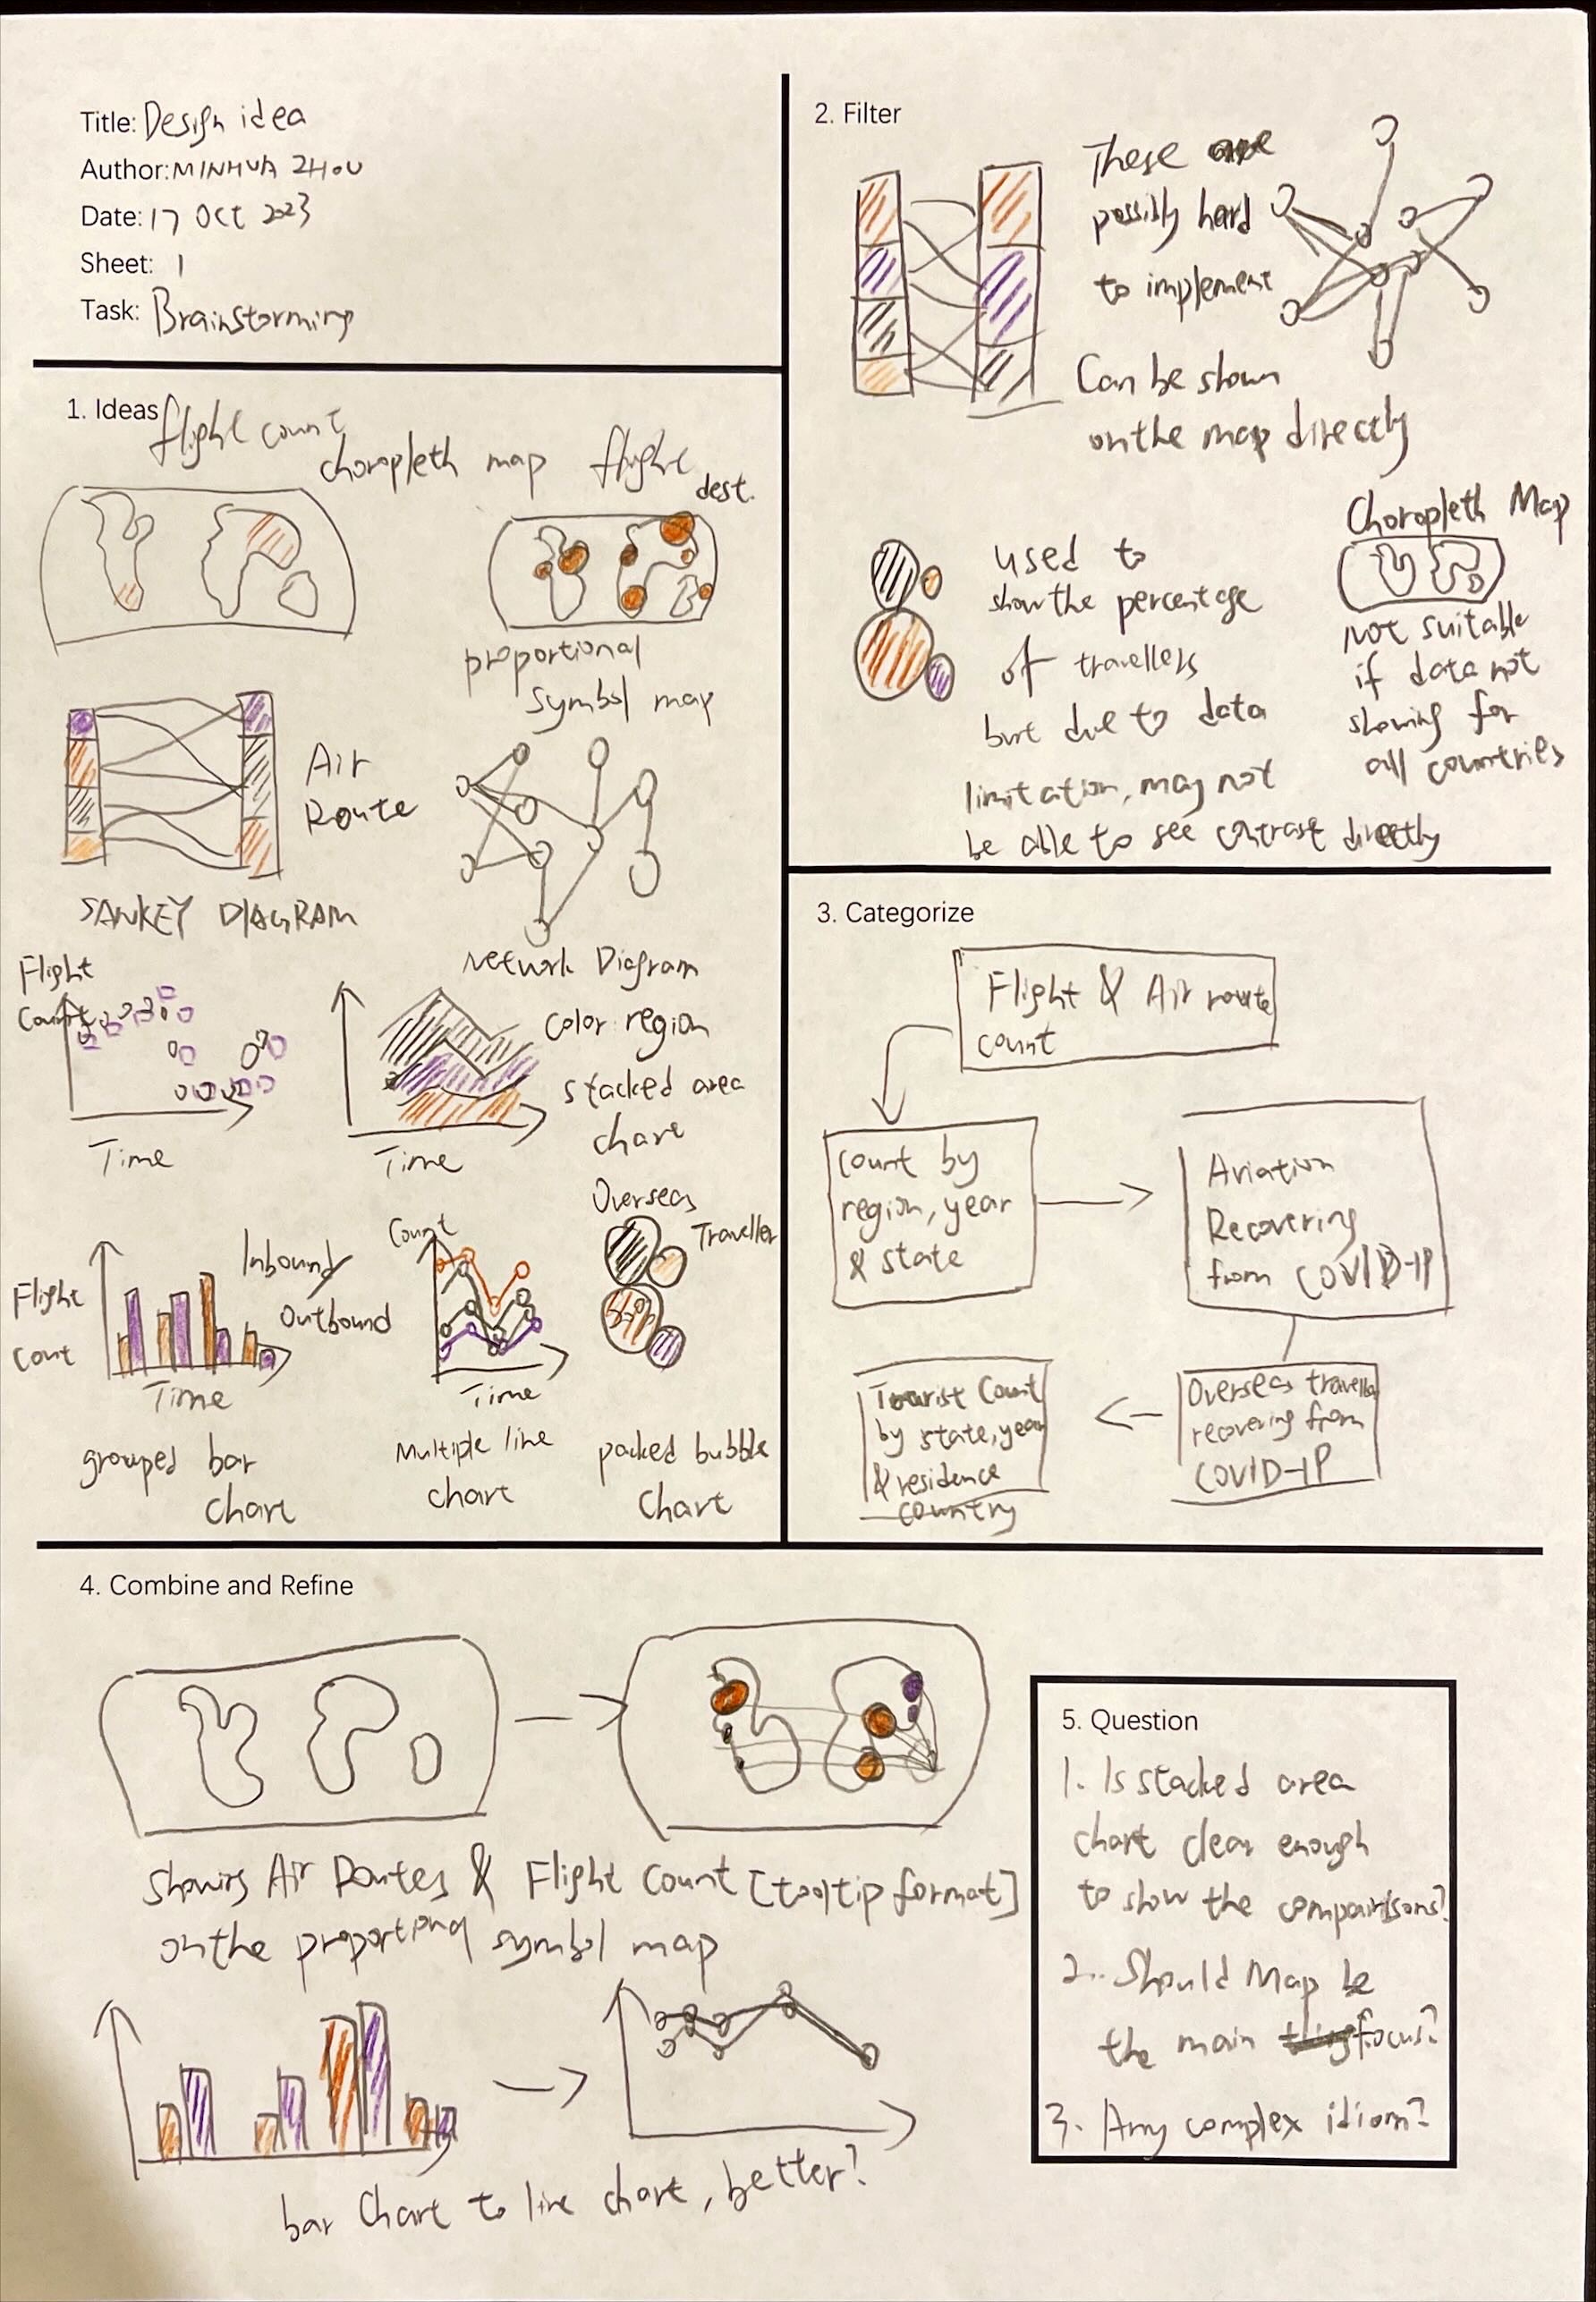 Title: Design idea
Author: MINHUA ZHOU
Date: 17 Oct 2023
Sheet: 1
Task: Brainstorming
1. Ideas
flight count
choropleth map
flight
dest.
proportional
symbol map
Air
Route
SANKEY DIAGRAM
Network Diagram
Flight
Count
Time
color region
stacked area
chart
Time
Flight
Cont
Inbound/
Outbound
Time
grouped bar
chart
Count
Time
Multiple line
chart
Overseas
Traveller
packed bubble
chart
2. Filter
These are
possibly hard
to implement
Can be shown
on the map directly
used to
show the percentage
of travellers
but due to data
limitation, may not
be able to see contrast directly
Choropleth Map
not suitable
if data not
showing for
all countries
3. Categorize
Flight & Air route
count
Count by
region, year
& state
Aviation
Recovering
from COVID-19
Overseas traveller
recovering from
COVID-19
Tourist Count
by state, year
& residence
country
4. Combine and Refine
Shows Air Routes & Flight Count [tooltip format]
on the proportional symbol map
bar Chart to line chart, better?
5. Question
1. Is stacked area
chart clear enough
to show the comparisons?
2. Should Map be
the main focus?
3. Any complex idiom?